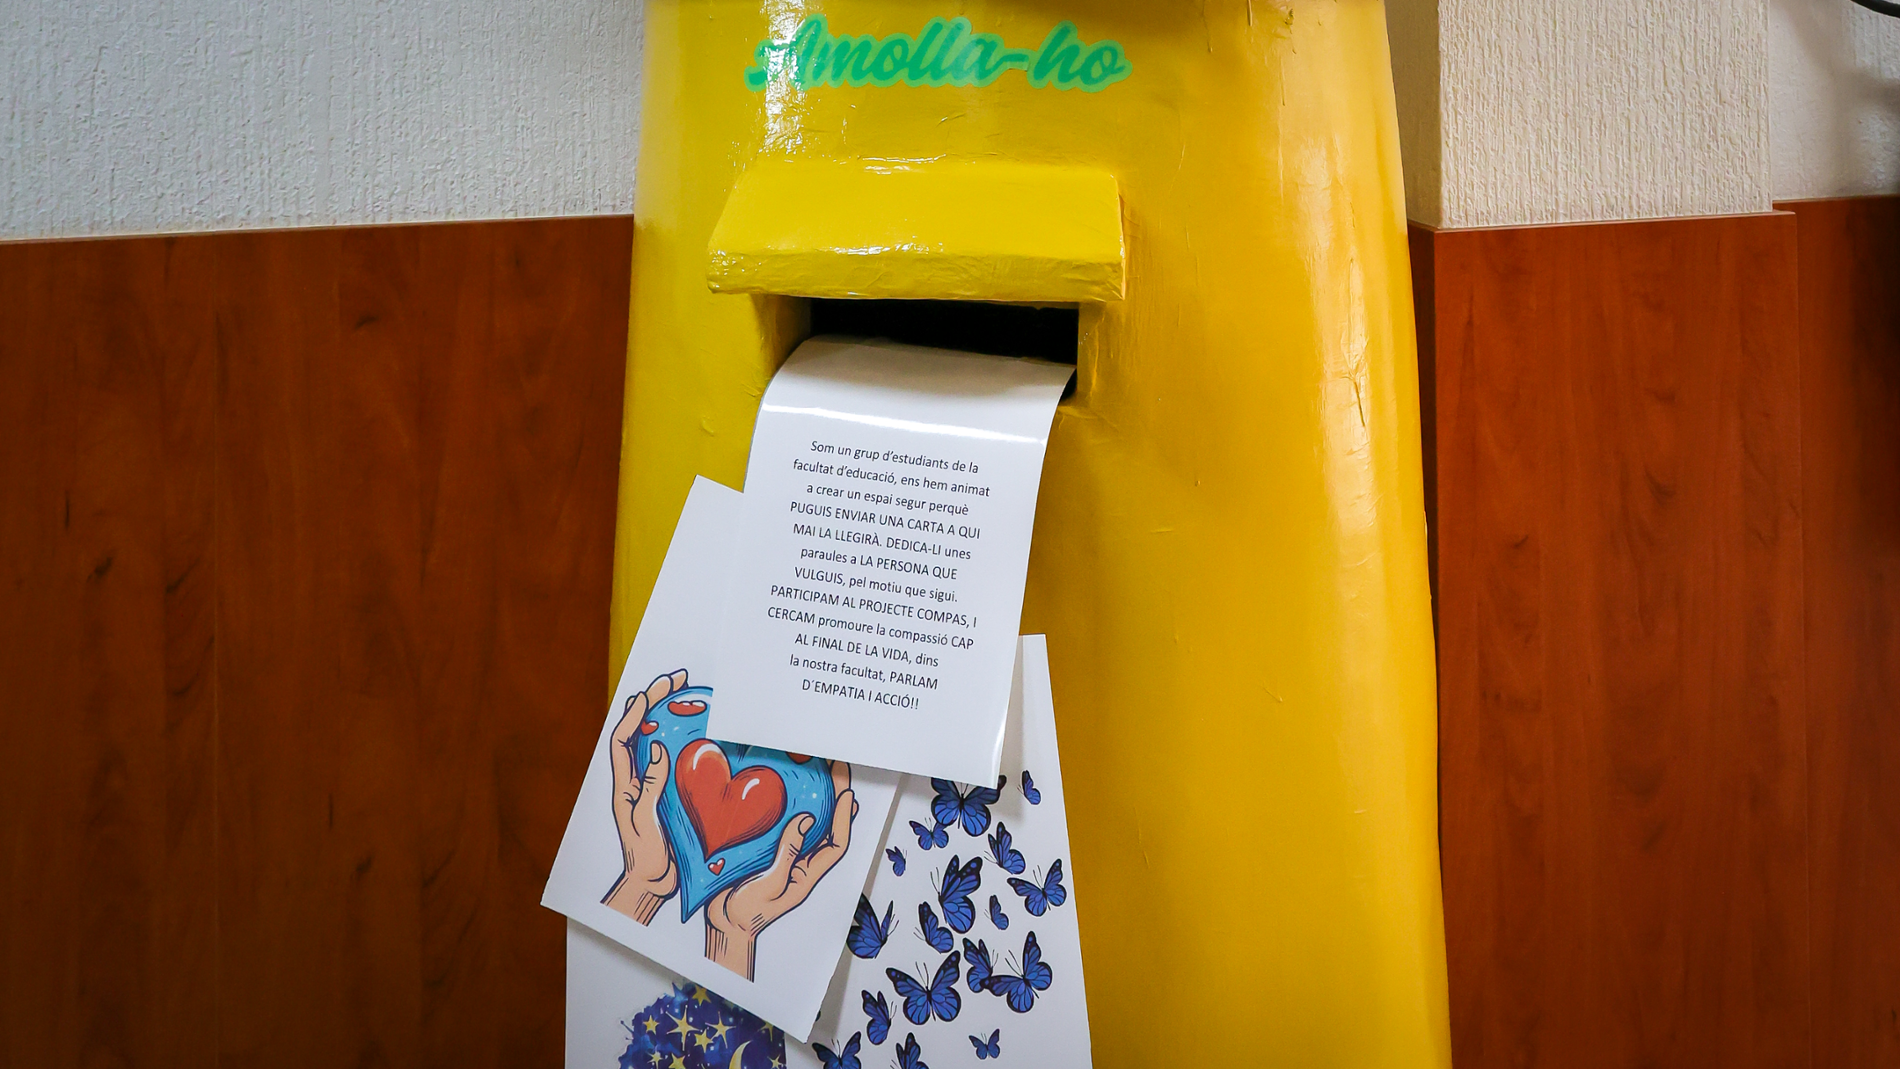 Amolla-ho
Som un grup d'estudiants de la
facultat d'educació, ens hem animat
a crear un espai segur perquè
PUGUIS ENVIAR UNA CARTA A QUI
MAI LA LLEGIRÀ. DEDICA-LI unes
paraules a LA PERSONA QUE
VULGUIS, pel motiu que sigui.
PARTICIPAM AL PROJECTE COMPAS, I
CERCAM promoure la compassió CAP
AL FINAL DE LA VIDA, dins
la nostra facultat, PARLAM
D´EMPATIA I ACCIÓ!!